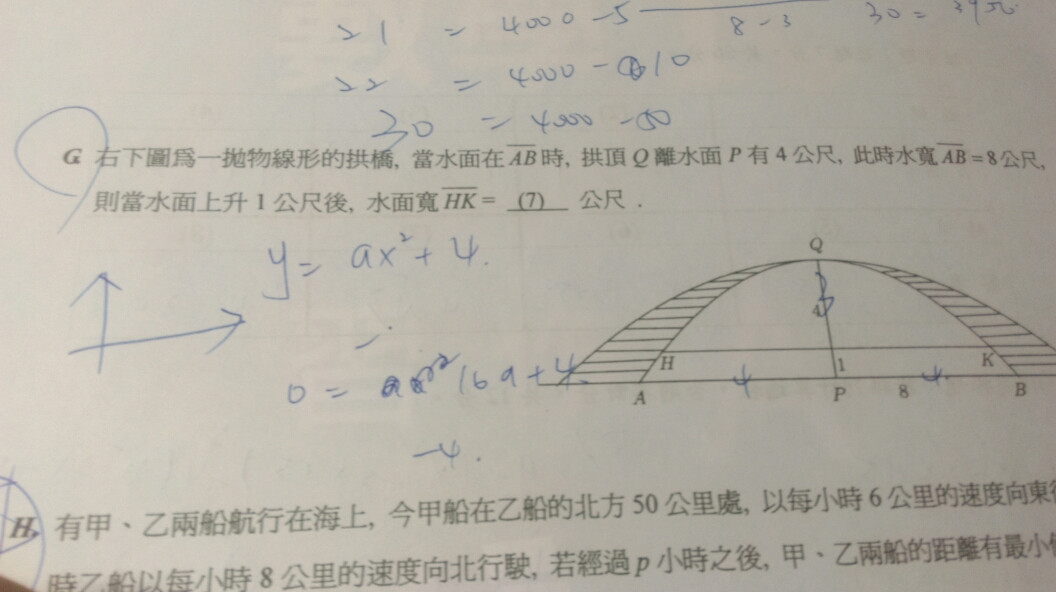 21 = 4000 - 5
8 - 3
22 = 4000 - 10
30 = 4000 - 50
G. 右下圖為一拋物線形的拱橋, 當水面在 AB 時, 拱頂 Q 離水面 P 有 4 公尺, 此時水寬 AB = 8 公尺,
則當水面上升 1 公尺後, 水面寬 HK = (7) 公尺 .
y = ax² + 4.
Q
4
H 1 K
0 = 16a + 4.
4 4
A P 8 B
-4.
H. 有甲、乙兩船航行在海上, 今甲船在乙船的北方 50 公里處, 以每小時 6 公里的速度向東
時乙船以每小時 8 公里的速度向北行駛, 若經過 p 小時之後, 甲、乙兩船的距離有最小